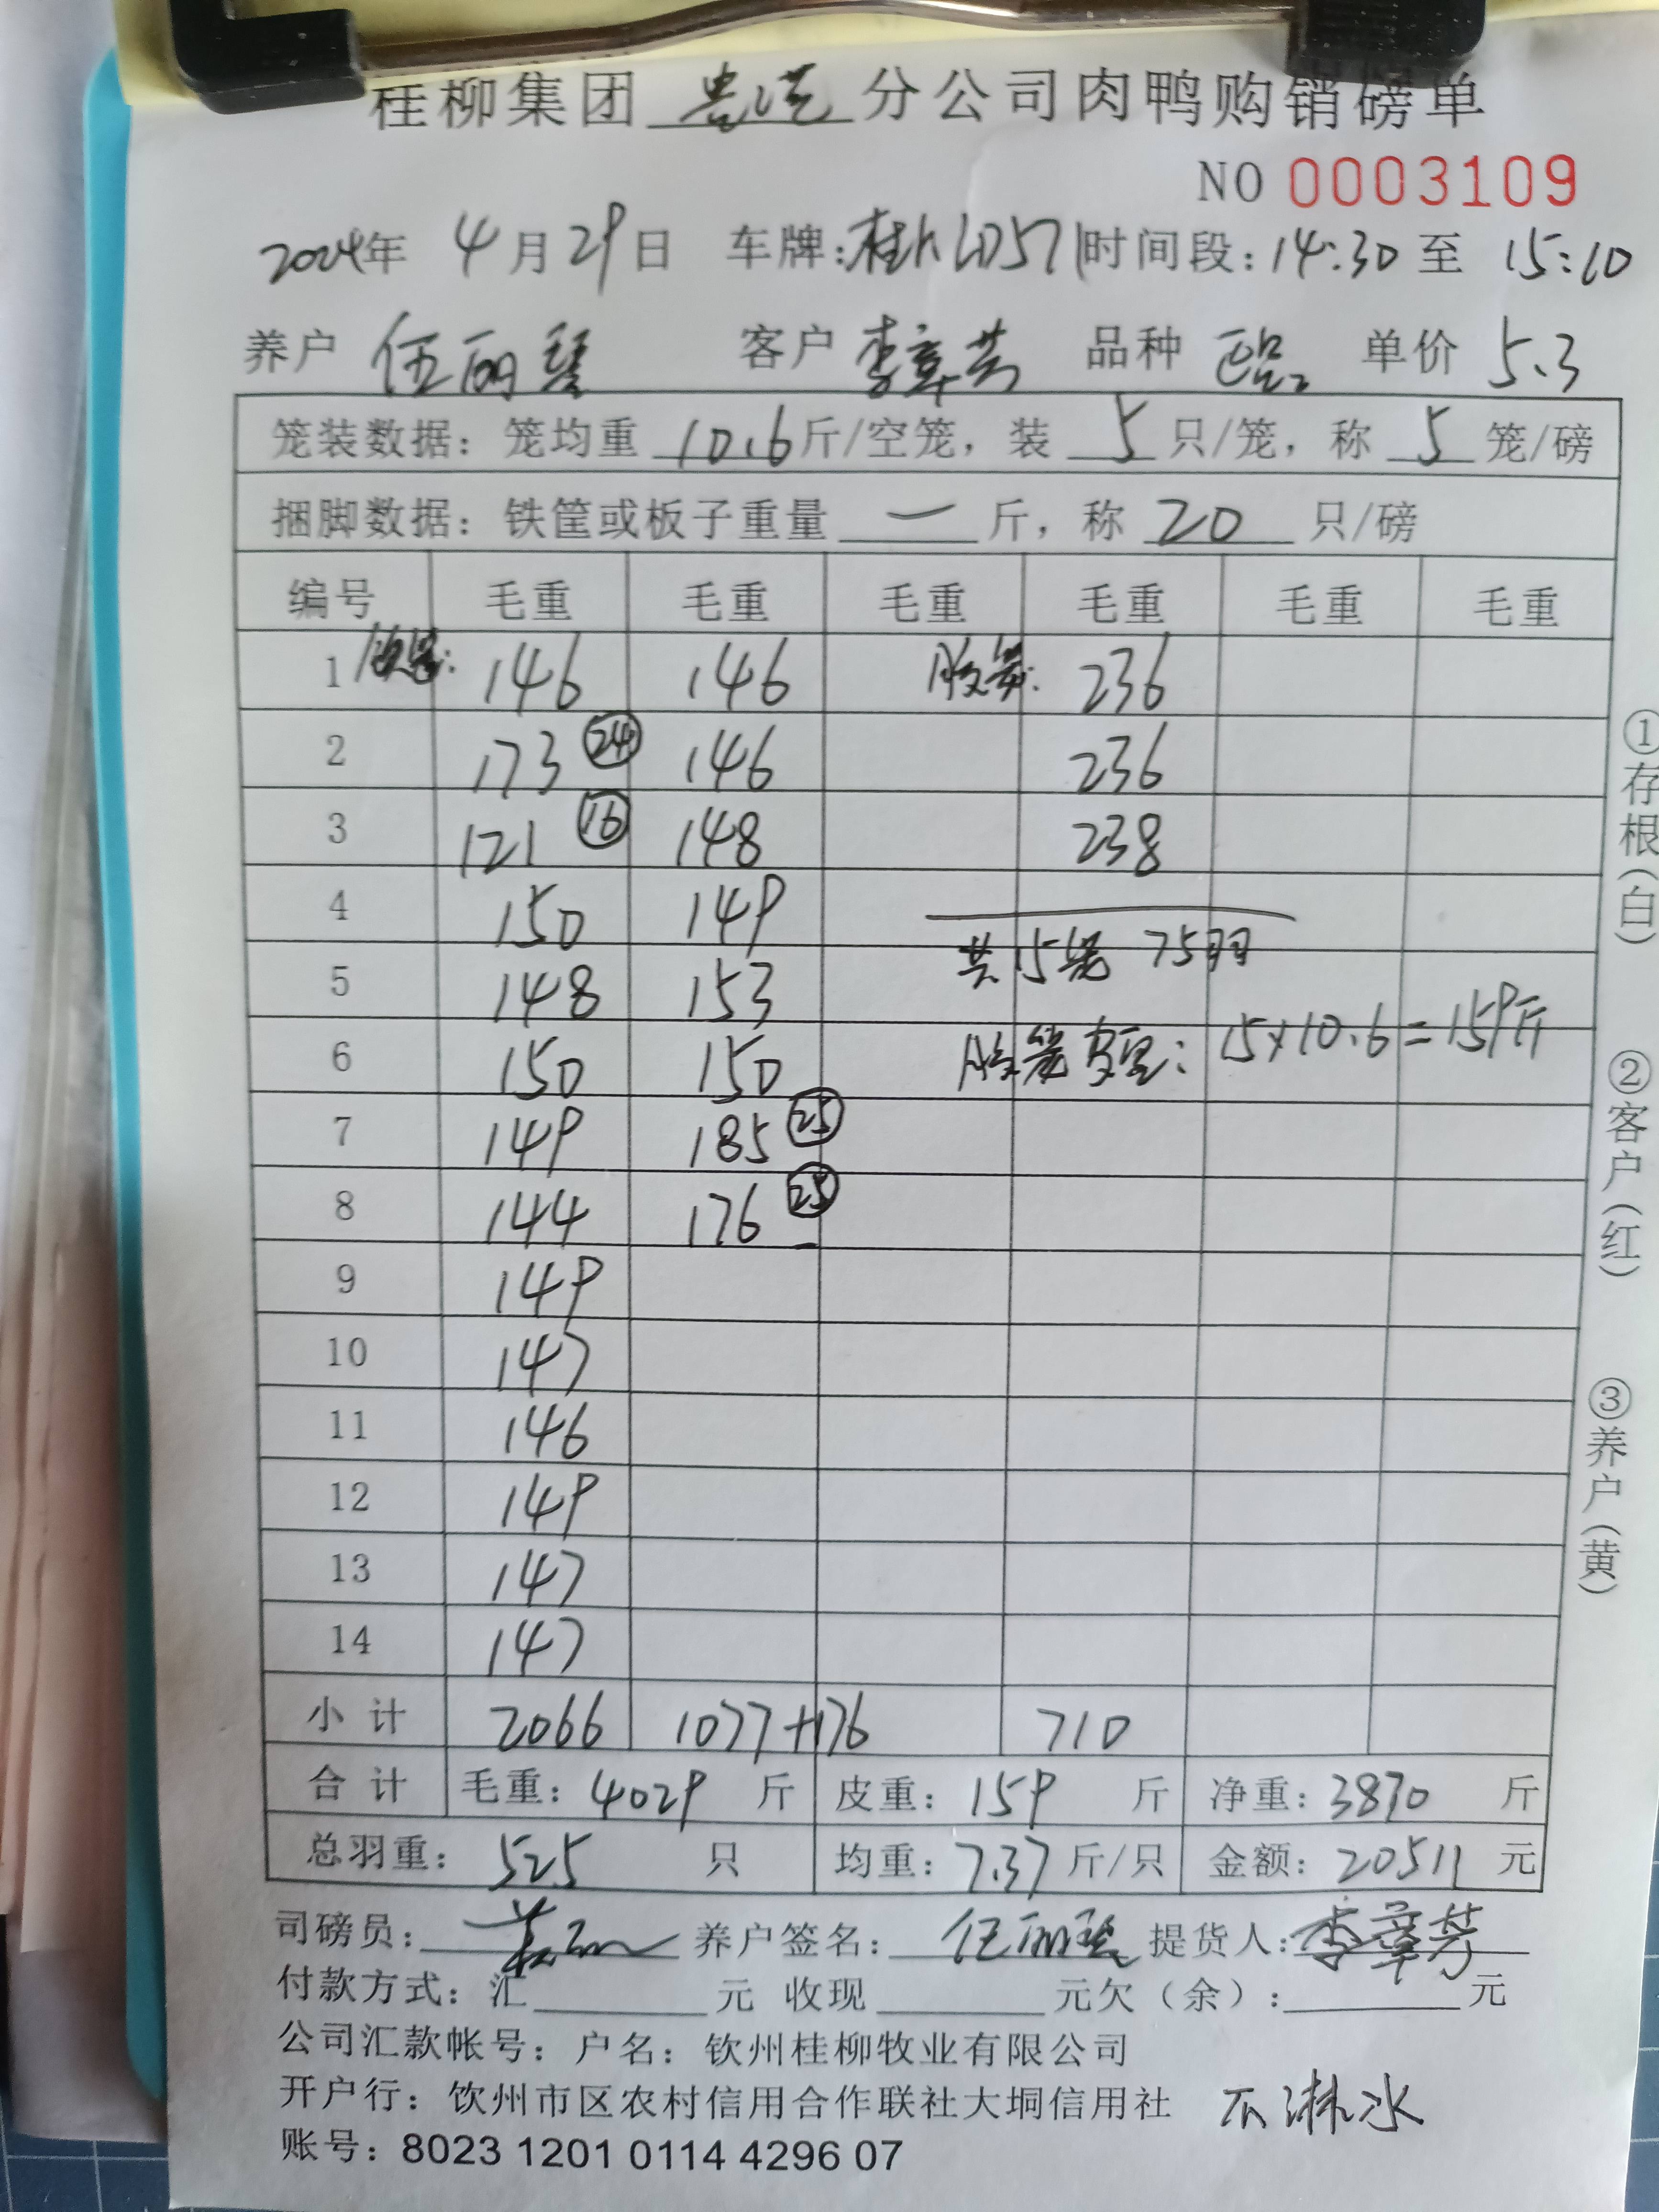 桂柳集团 贵港 分公司肉鸭购销磅单
NO 0003109
2024年 4月29日 车牌:桂 时间段:14:30 至 15:10
养户 伍丽琴 客户 李章芳 品种 单价 5.3
笼装数据:笼均重 10.6斤/空笼,装 5 只/笼,称 5 笼/磅
捆脚数据:铁筐或板子重量 一 斤,称 20 只/磅
编号 毛重 毛重 毛重 毛重 毛重 毛重
1 146 146 胶笼: 236
2 173 24 146 236
3 121 16 148 238
4 150 149
5 148 153 共15笼 75羽
6 150 150 胶笼皮重: 15×10.6=159斤
7 149 185 25
8 144 176 25
9 149
10 147
11 146
12 149
13 147
14 147
小计 2066 1077+176 710
合计 毛重:4029 斤 皮重:159 斤 净重:3870 斤
总羽重:525 只 均重:7.37斤/只 金额:20511 元
司磅员: 养户签名:伍丽琴 提货人:李章芳
付款方式:汇 元 收现 元欠(余): 元
公司汇款帐号:户名:钦州桂柳牧业有限公司
开户行:饮州市区农村信用合作联社大垌信用社 不淋水
账号:8023 1201 0114 4296 07
①存根(白)
②客户(红)
③养户(黄)